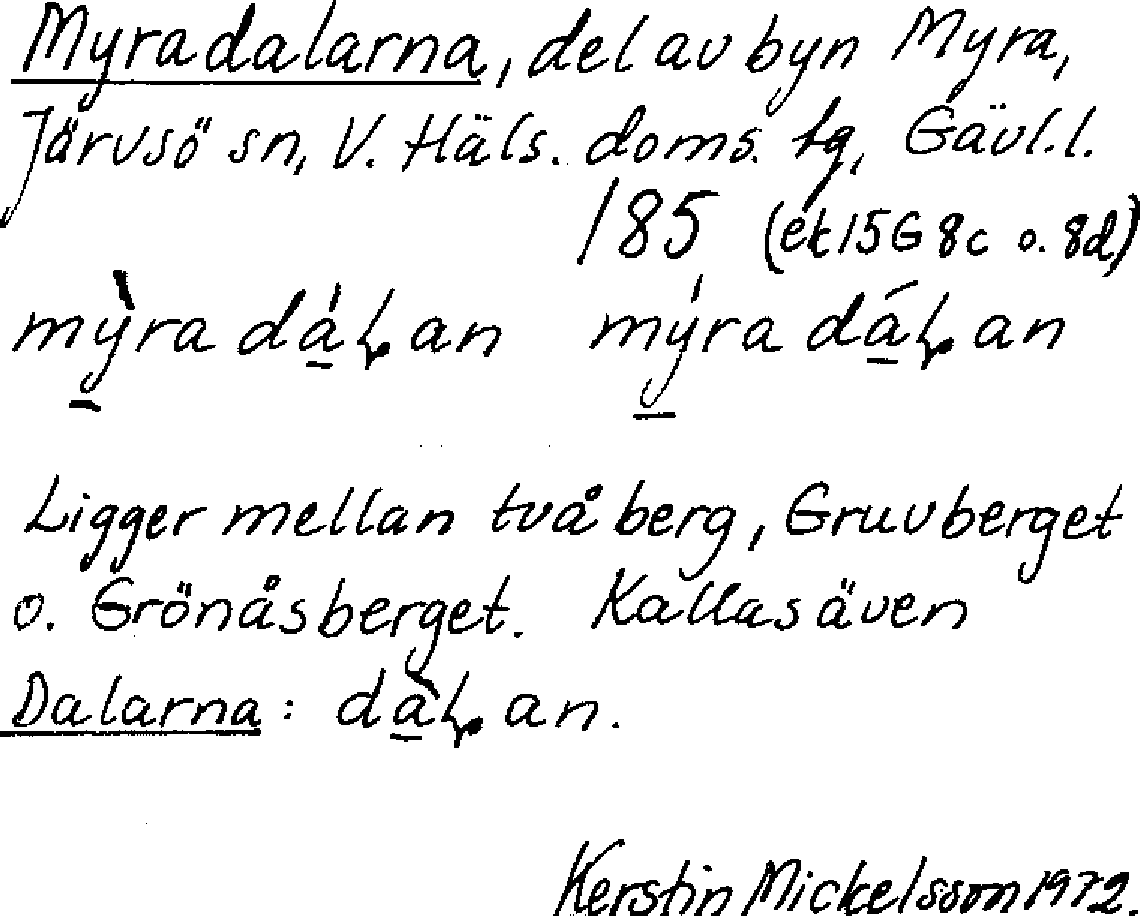 Myradalarna, del av byn Myra,
Järvsö sn, V. Häls. doms. tg, Gävl.l.
185 (ek 15G 8c o. 8d)
mỳ̠ra dá̠ɽan mý̠ra dá̠ɽan
Ligger mellan två berg, Gruvberget
o. Grönåsberget. Kallas även
Dalarna: dà̠ɽan.
Kerstin Mickelsson 1972.